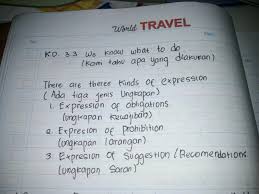 World TRAVEL
KD. 3.3 We know what to do
(Kami tahu apa yang dilakukan)
There are theree kinds of expression
(Ada tiga jenis Ungkapan)
1. Expression of obligations
(ungkapan Kewajiban)
2. Expresion of Prohibition
(ungkapan larangan)
3. Expresion of Suggestion (Recomendations
(ungkapan Saran)